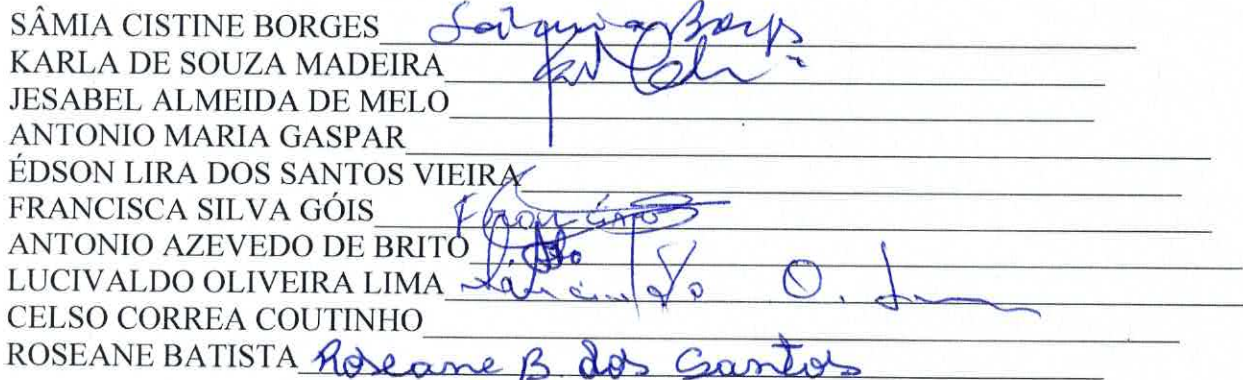 SÂMIA CISTINE BORGES Borges
KARLA DE SOUZA MADEIRA
JESABEL ALMEIDA DE MELO
ANTONIO MARIA GASPAR
ÉDSON LIRA DOS SANTOS VIEIRA
FRANCISCA SILVA GÓIS
ANTONIO AZEVEDO DE BRITO
LUCIVALDO OLIVEIRA LIMA O.
CELSO CORREA COUTINHO
ROSEANE BATISTA Roseane B. dos Santos